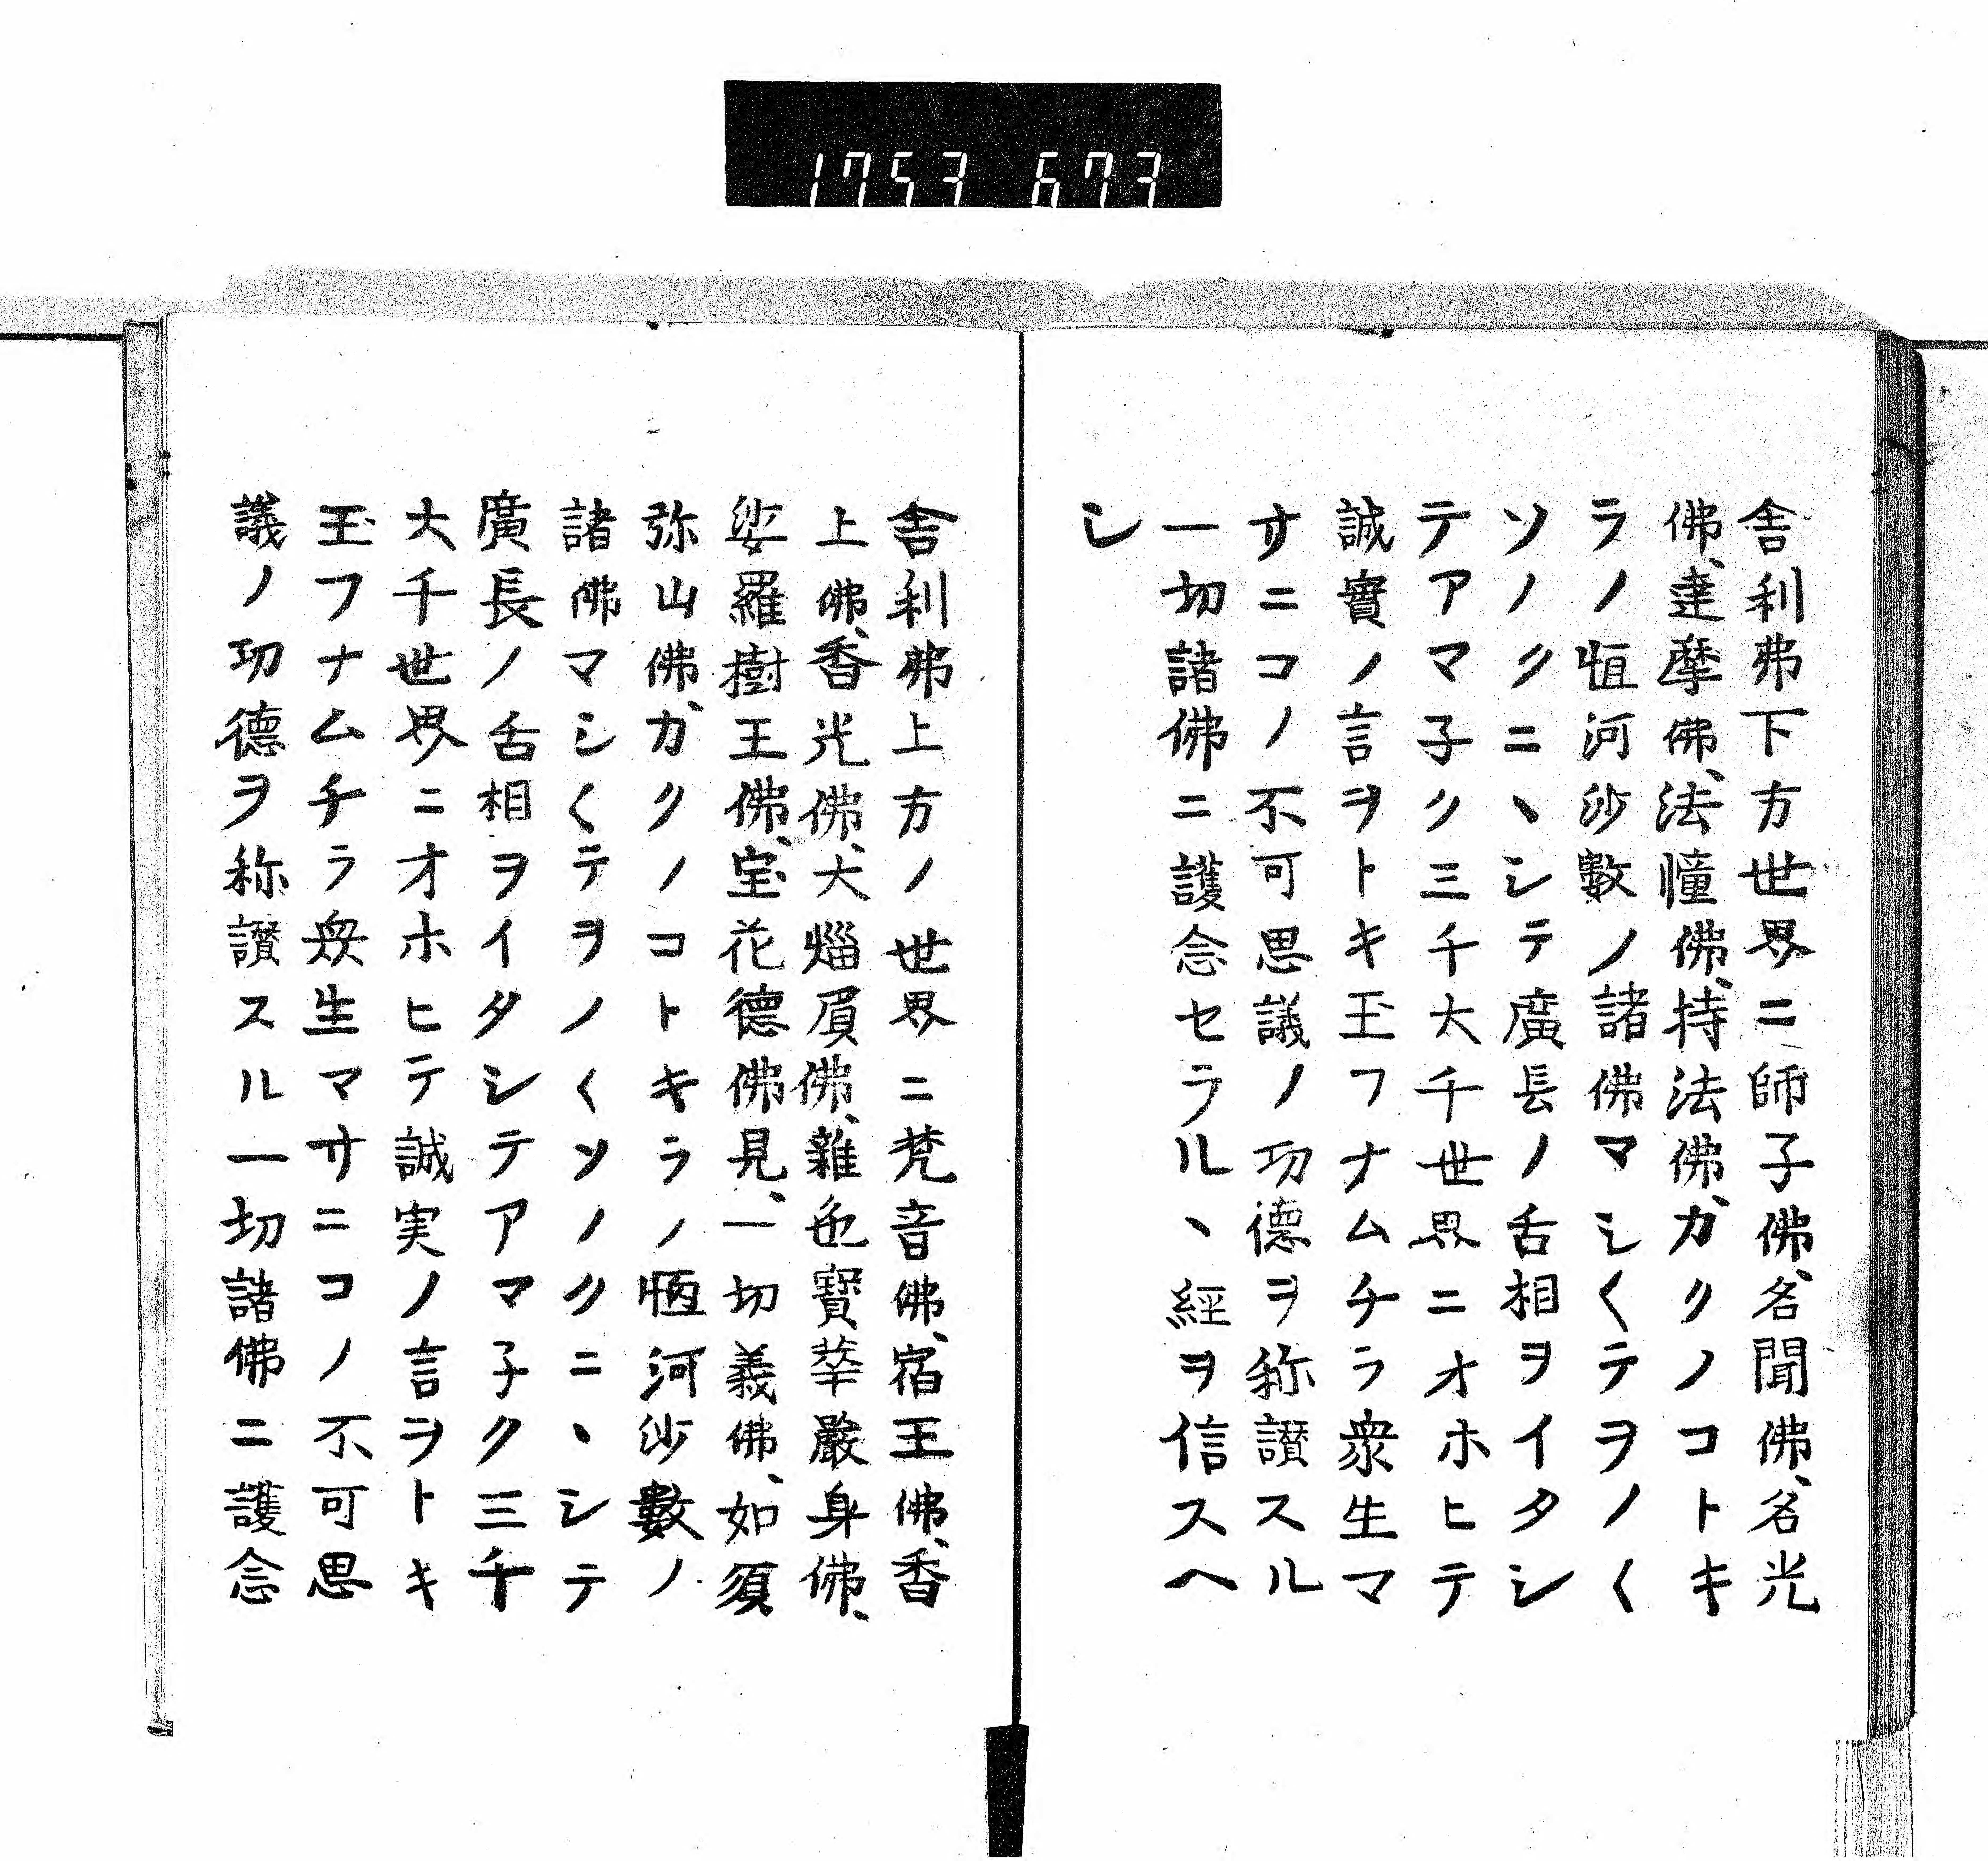 1753 673
舎利弗下方世界ニ師子佛、名聞佛、名光
佛、達摩佛、法憧佛、持法佛、カクノコトキ
ラノ恒河沙數ノ諸佛マシ〱テヲノ〱
ソノクニヽシテ廣長ノ舌相ヲイタシ
テアマ子ク三千大千世界ニオホヒテ
誠實ノ言ヲトキ玉フナムチラ衆生マ
サニコノ不可思議ノ功德ヲ称讃スル
一切諸佛ニ護念セラルヽ經ヲ信スヘ
シ
舎利弗上方ノ世界ニ梵音佛、宿王佛、香
上佛、香光佛、大焰肩佛、雜色寳華嚴身佛、
娑羅樹王佛、宝花德佛、見一切義佛、如須
弥山佛、カクノコトキラノ恒河沙數ノ
諸佛マシ〱テヲノ〱ソノクニヽシテ
廣長ノ舌相ヲイタシテアマ子ク三千
大千世界ニオホヒテ誠実ノ言ヲトキ
玉フナムチラ衆生マサニコノ不可思
議ノ功德ヲ称讃スル一切諸佛ニ護念